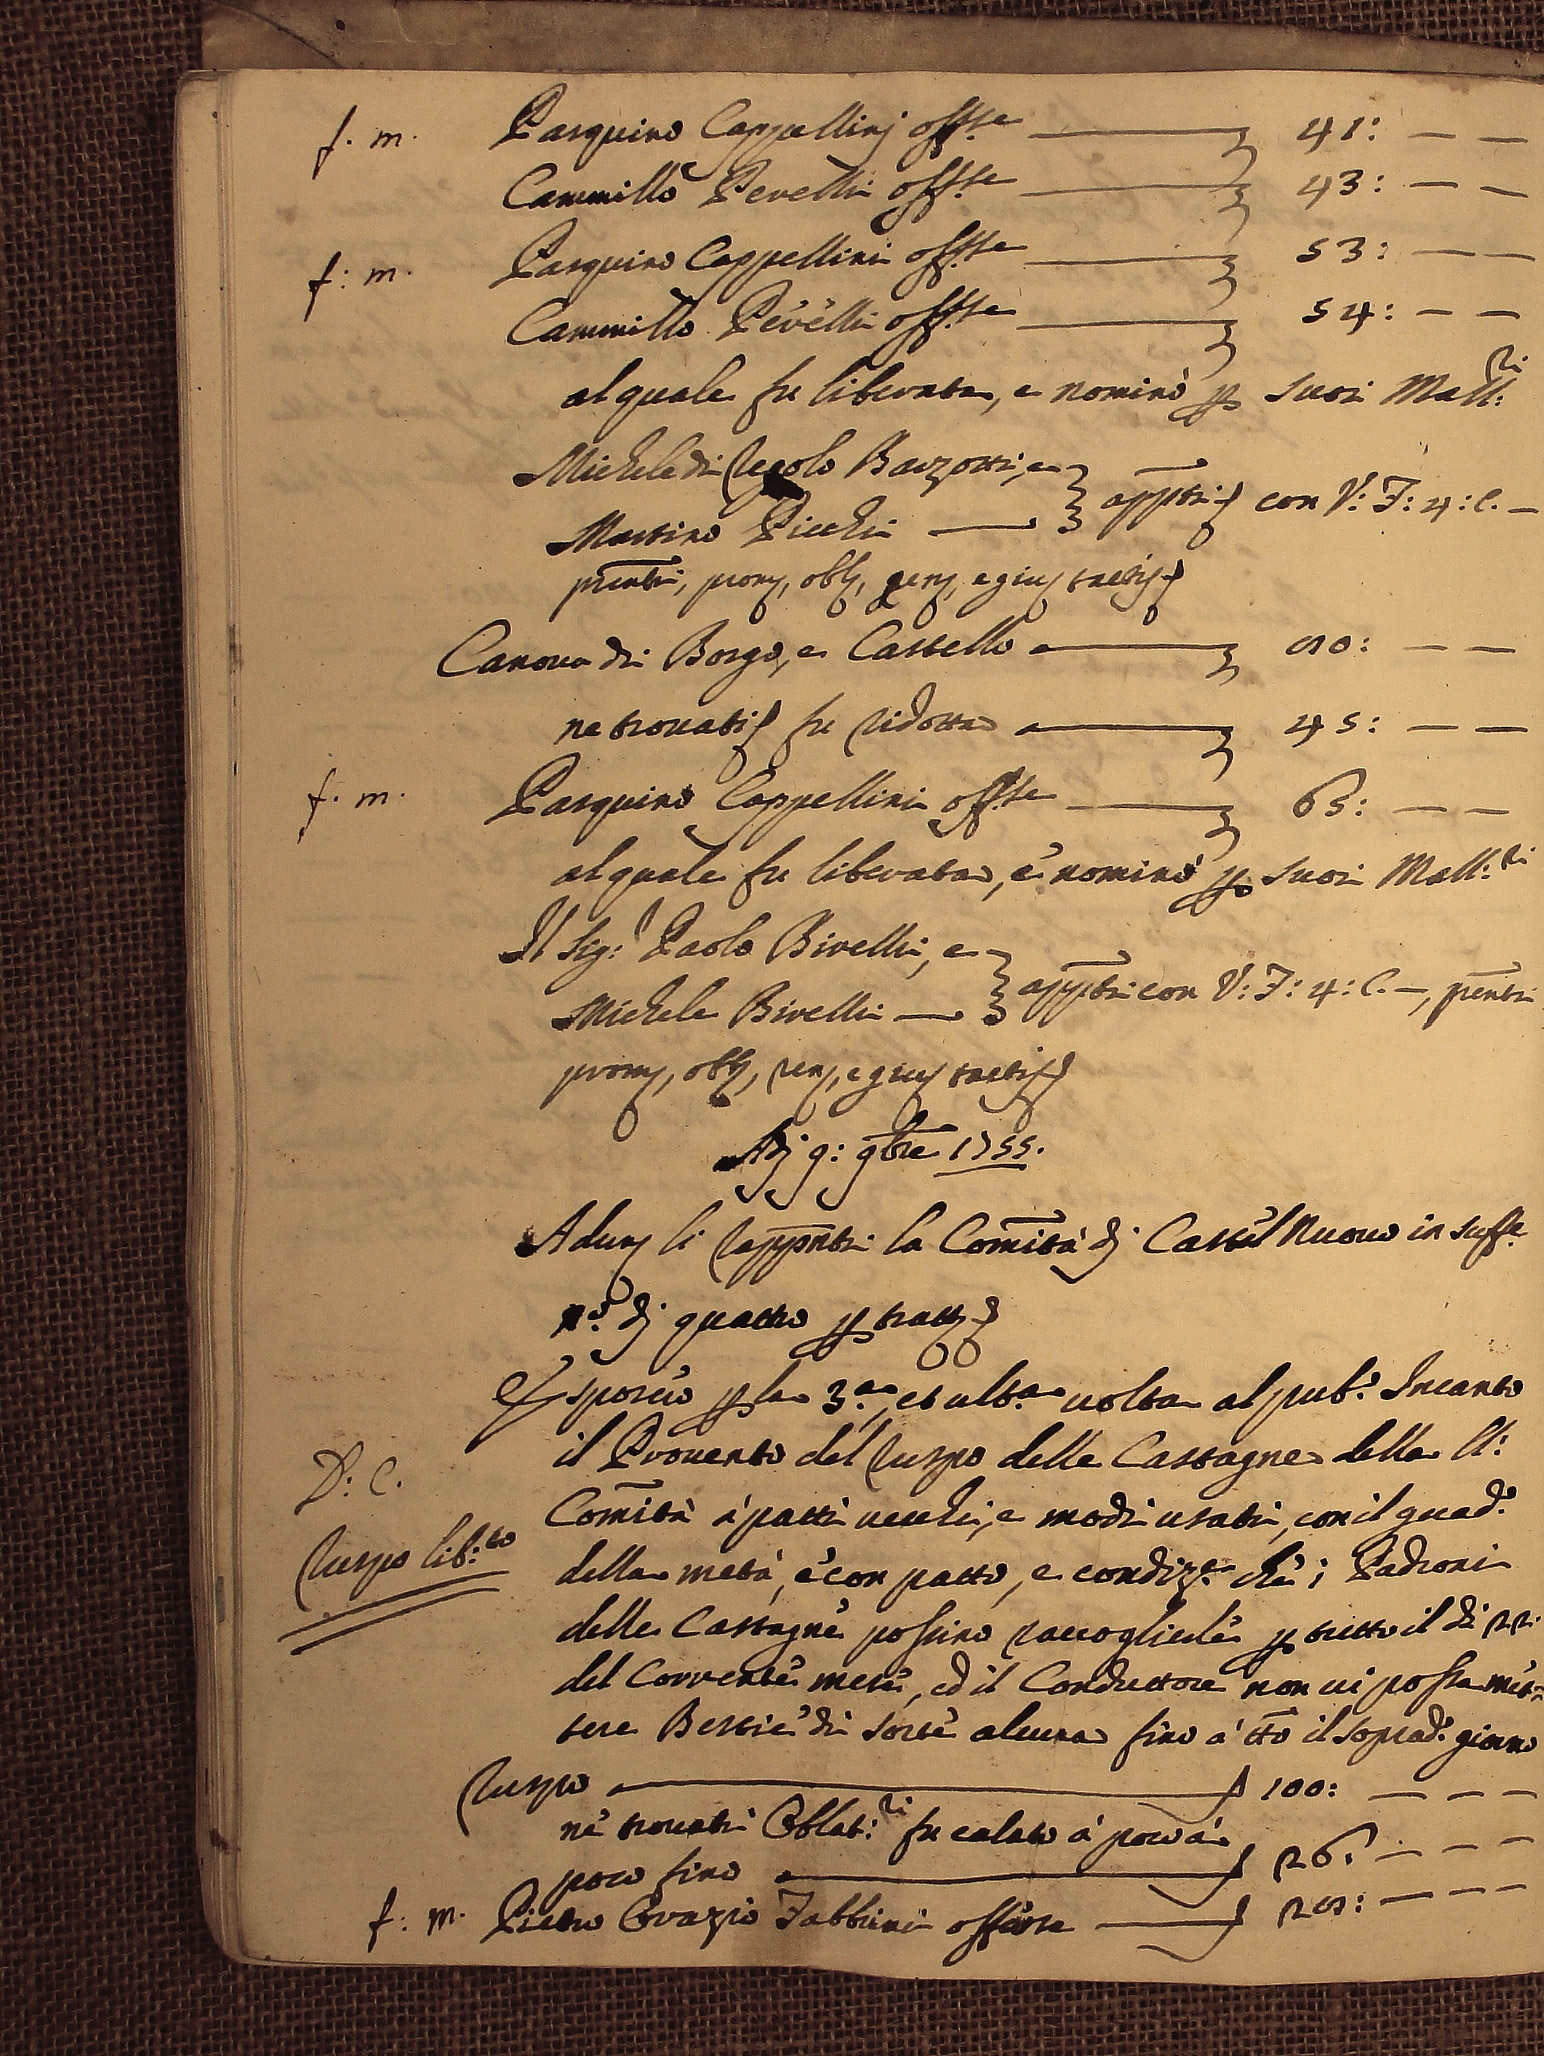 f. m. Pasquino Cappellinj offse 41: — —
Cammillo Pevelli offse 43: — —
f: m. Pasquino Cappellini offse 53: — —
Cammillo Pevelli offse 54: — —
al quale fu liberata, e nominò p suoi Mall:ri
Michele di Regolo Barzotti, e
Martino Picchi — appti con V: F: 4: C. —
prenti, prom, obb, ren, e giu tactis
Canova di Borgo, e Castello 80: — —
ne trovatis fu ridotta 45: — —
f. m. Pasquino Cappellini offse 65: — —
al quale fu liberata, e nominò p suoi Mall:ri
Il Sig: Paolo Bivelli, e
Michele Bivelli — appti con V: F: 4: C. —, prenti
prom, obb, ren, e giu tactis
Adj 9: 9bre 1755.
Adun li Rapprnti la Comità dj Castel Nuovo in suffe
no: dj quattro p tratt
Esposero p la 3.a, et ult.a volta al pub.o Incanto
il Provento del Ruspo delle Castagne della
D: C. Comità à patti vecchi, e modi usati, con il quad.o
Ruspo lib:to della metà, e con patto, e condiz.e che i Padroni
delle Castagne possino raccoglierle p tutto il di 22
del Corrente mese, ed il Conduttore non vi possa met-
tere Bestie di sorte alcuna fino à tto il soprad.o giorno
Ruspo 100: — — —
ne trovati Oblat:ri fu calato à poco à
poco fino 26: — — —
f: m. Pietro Orazio Fabbrini offerse 28: — — —